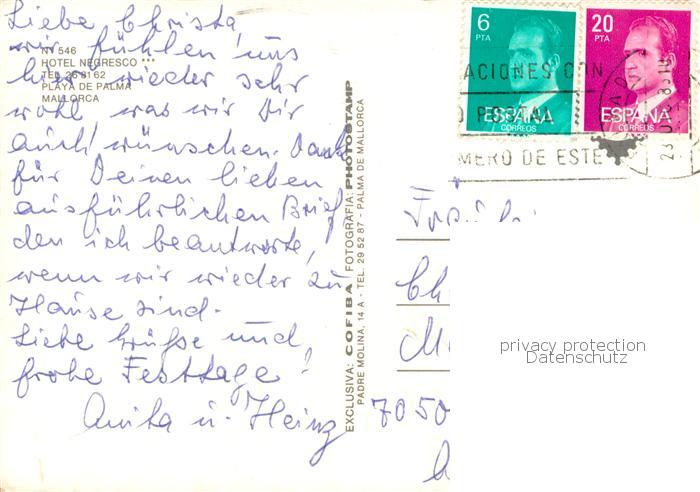 Liebe Christa,
wir fühlen uns
hier wieder sehr
wohl was wir Dir
auch wünschen. Dank
für Deinen lieben
ausführlichen Brief
den ich beantworte,
wenn wir wieder zu
Hause sind.
Liebe Grüße und
frohe Festtage!
Anita u. Heinz
Nº 546
HOTEL NEGRESCO ***
TEL. 26 81 62
PLAYA DE PALMA
MALLORCA
EXCLUSIVA: COFIBA FOTOGRAFIA: PHOTOSTAMP
PADRE MOLINA, 14 A - TEL. 29 52 87 - PALMA DE MALLORCA
6
PTA
ESPAÑA
CORREOS
20
PTA
ESPAÑA
CORREOS
ACIONES CON
MERO DE ESTE
Ch
7050
privacy protection
Datenschutz